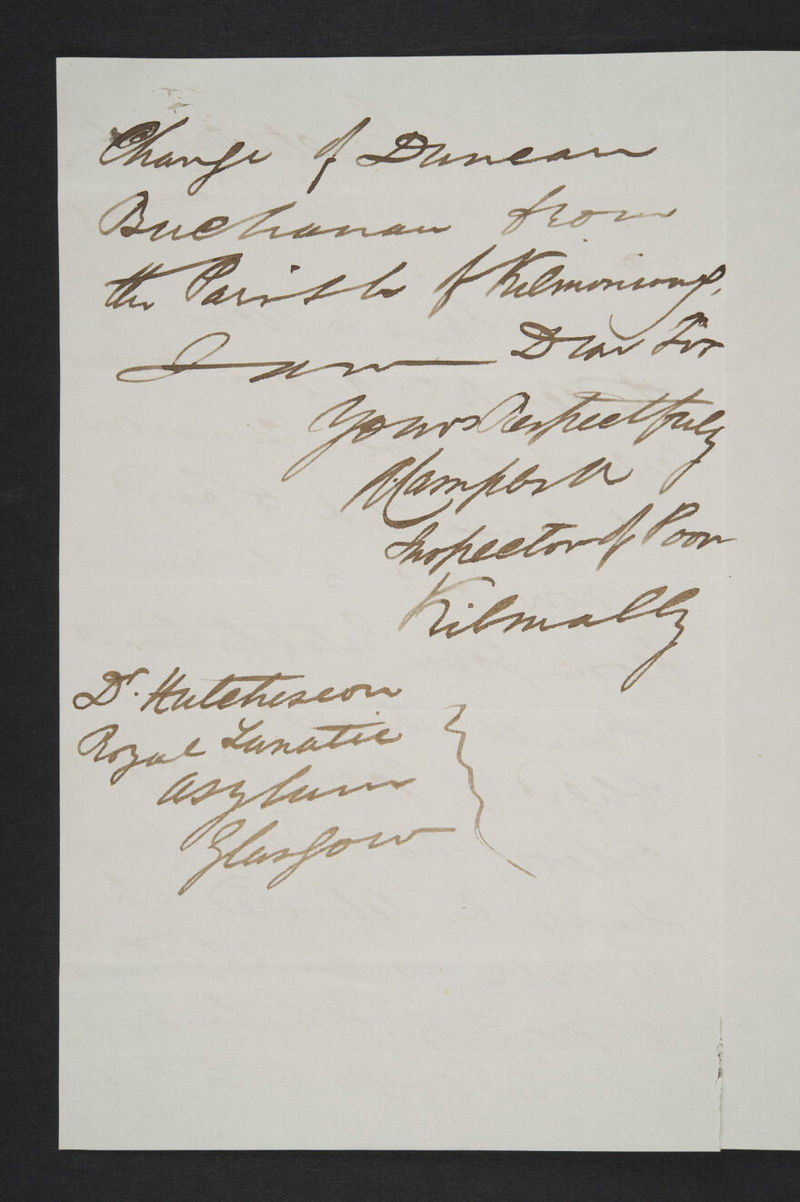 Charge of Duncan
Buchanan from
the Parish of Kilmonivaig,
I am Dear Sir
Yours Respectfully
Inspector of Poor
Kilmally
Dr. Hutcheson
Royal Lunatic
Asylum
Glasgow